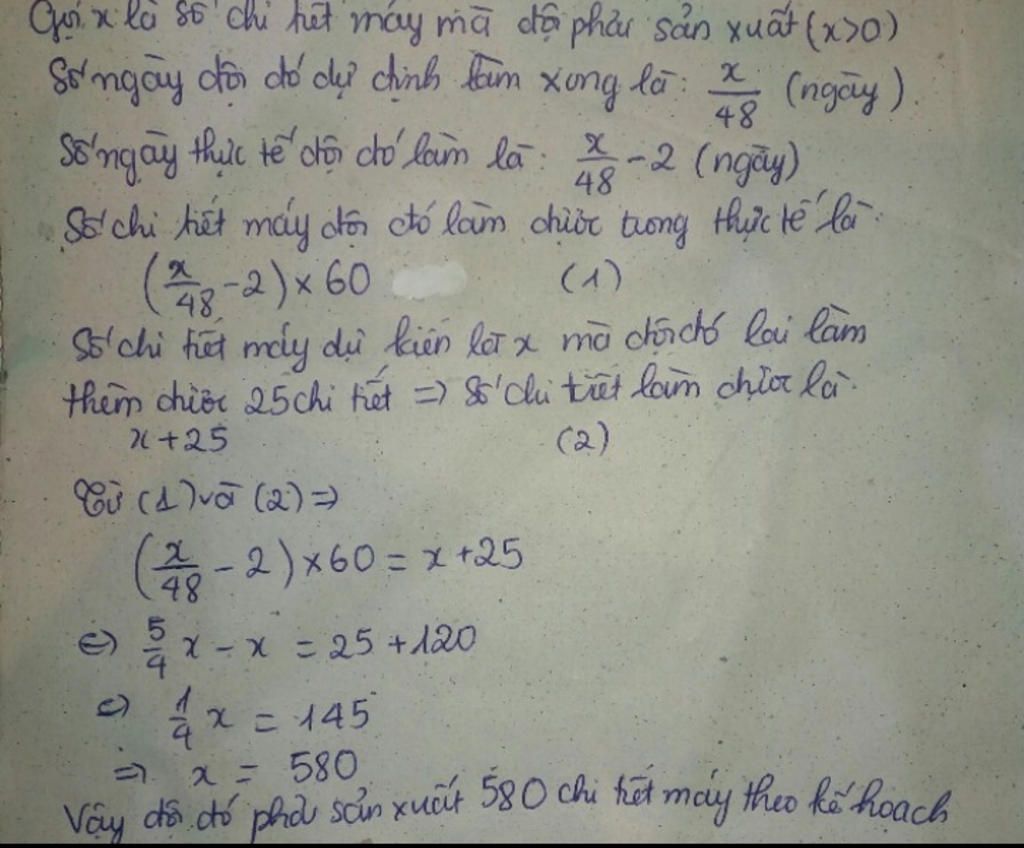 Gọi x là số chi tiết máy mà đội phải sản xuất (x>0)
Số ngày đội đó dự định làm xong là: x/48 (ngày).
Số ngày thực tế đội đó làm là: x/48 - 2 (ngày)
Số chi tiết máy đội đó làm được trong thực tế là:
(x/48 - 2) × 60 (1)
Số chi tiết máy dự kiến là x mà đội đó lại làm
thêm được 25 chi tiết => Số chi tiết làm được là:
x + 25 (2)
Từ (1) và (2) =>
(x/48 - 2) × 60 = x + 25
<=> 5/4 x - x = 25 + 120
<=> 1/4 x = 145
=> x = 580
Vậy đội đó phải sản xuất 580 chi tiết máy theo kế hoạch